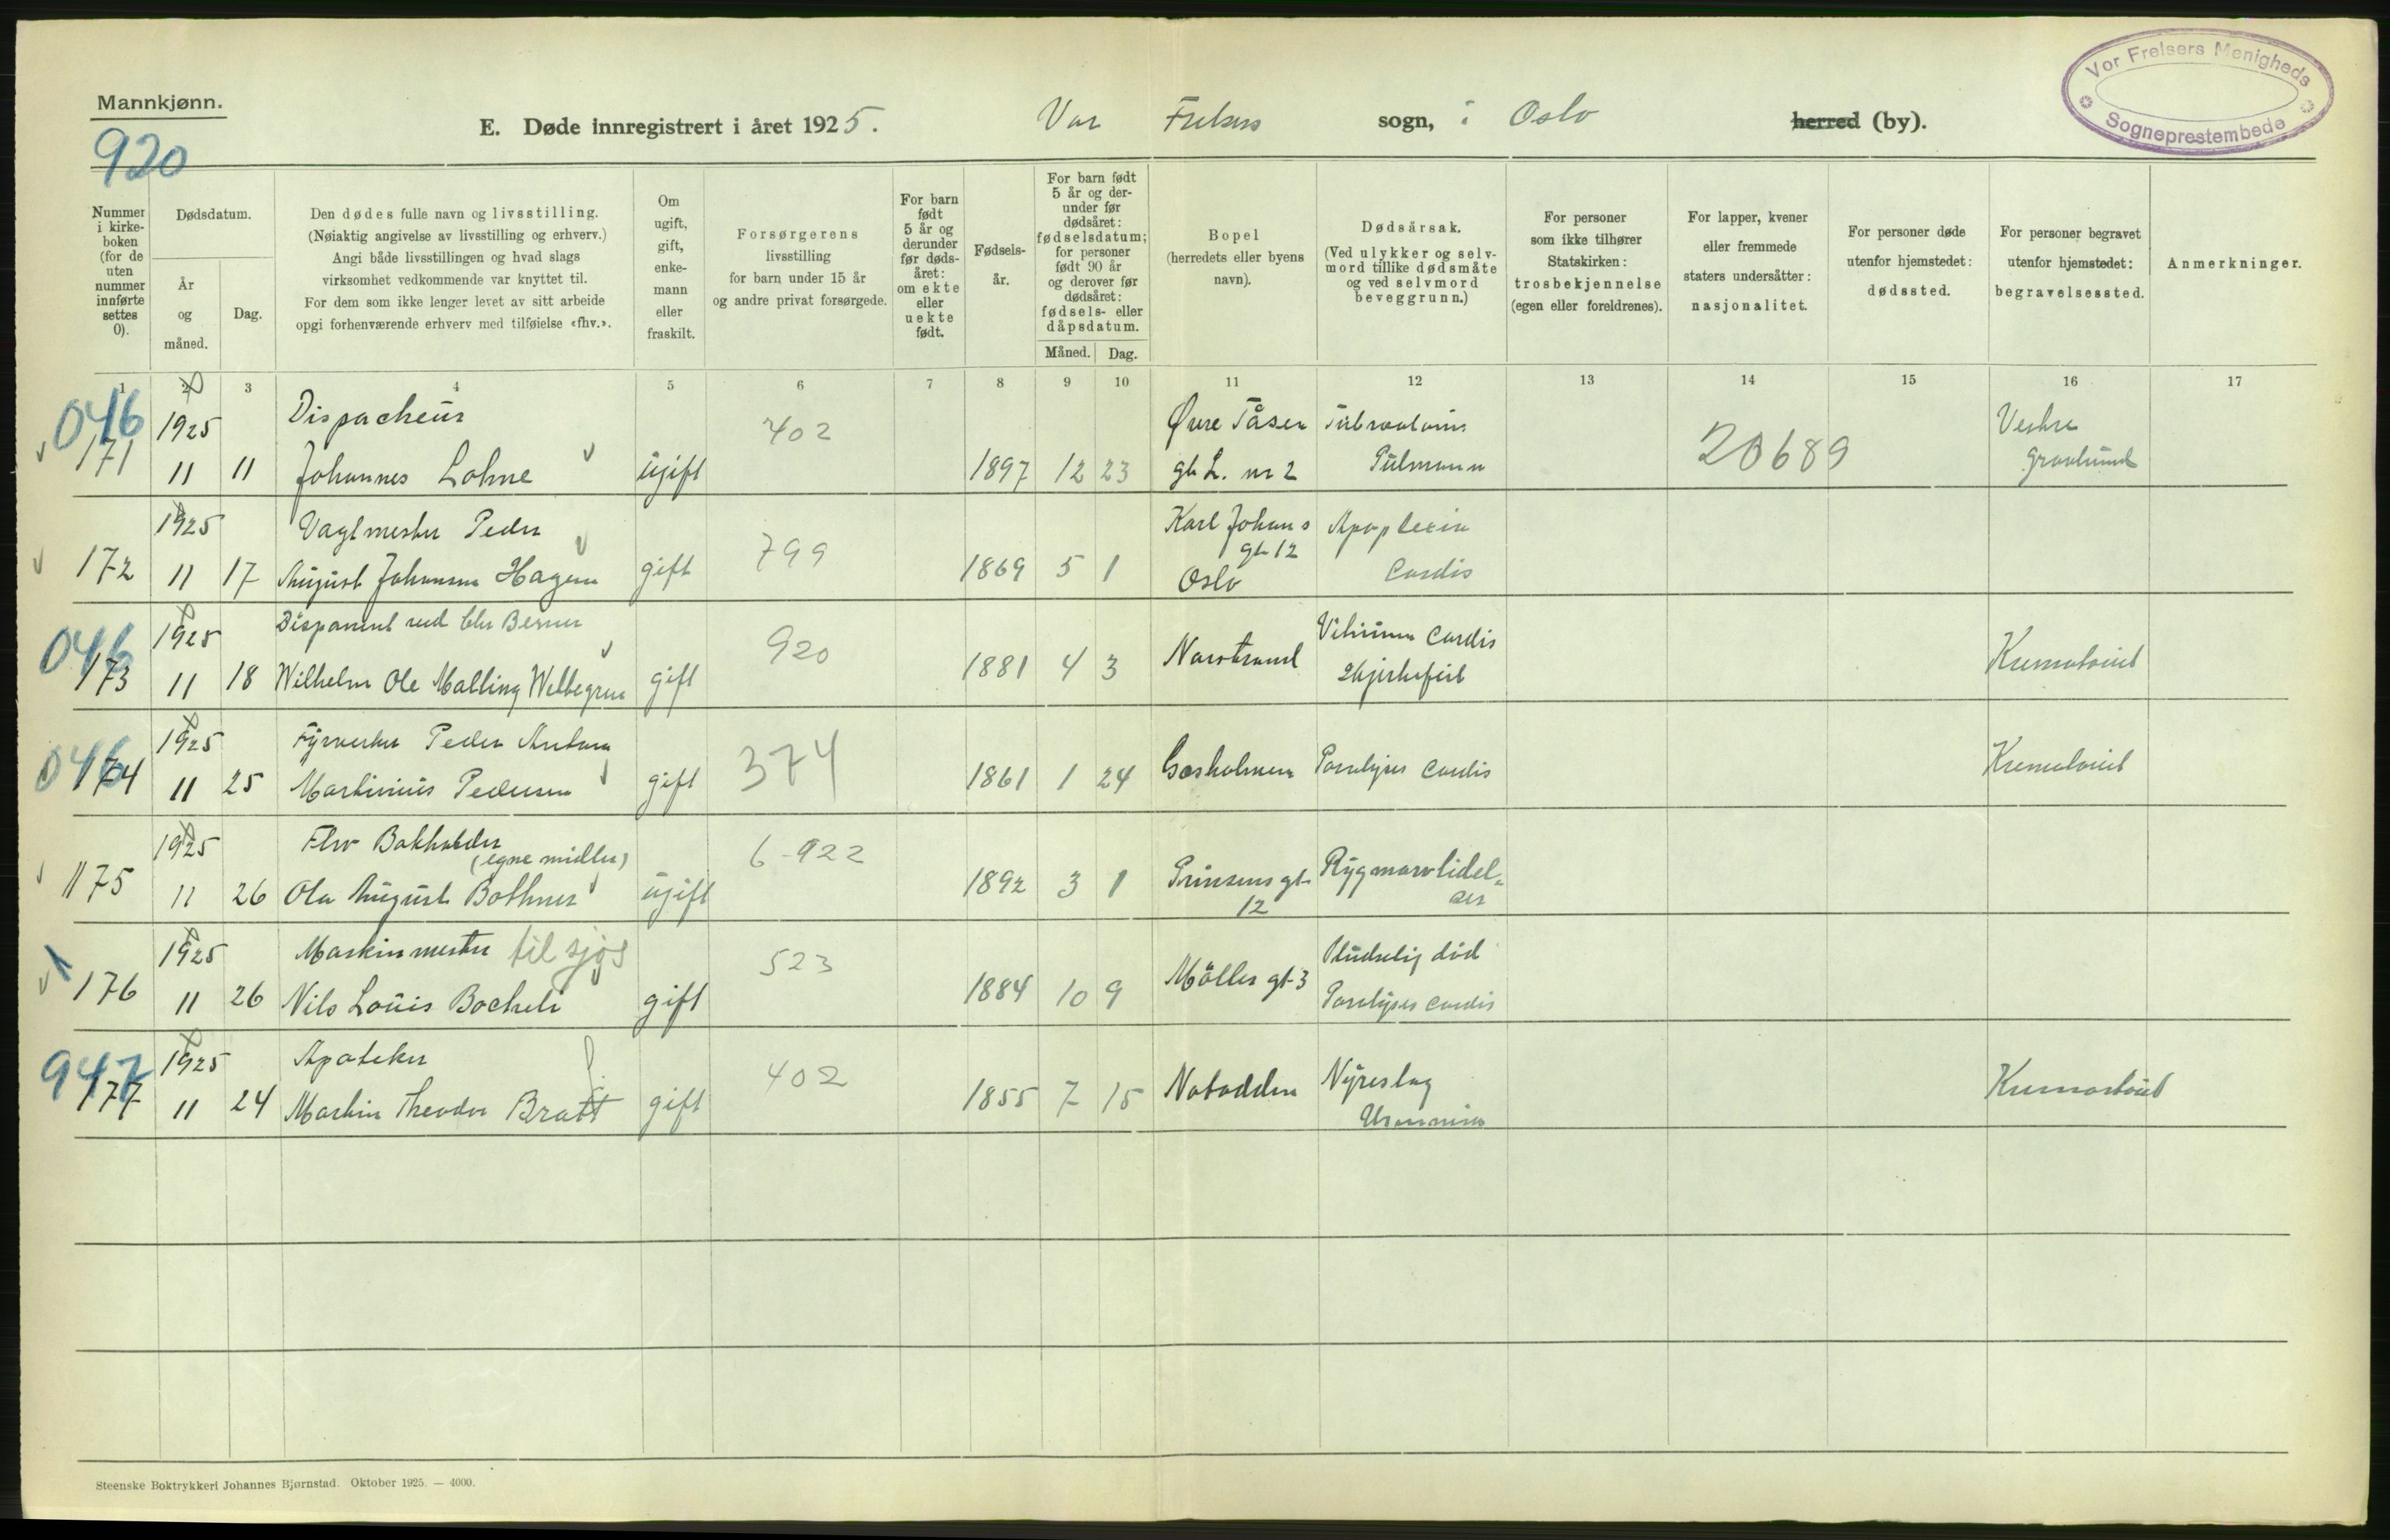 Mannkjønn.
920
E. Døde innregistrert i året 1925.
Vor Frelsers sogn, i Oslo herred (by).
Vor Frelsers Menigheds
Sogneprestembede
Nummer i kirke-boken (for de uten nummer innførte settes 0).
Dødsdatum.
År og måned.
Dag.
Den dødes fulle navn og livsstilling.
(Nøiaktig angivelse av livsstilling og erhverv.)
Angi både livsstillingen og hvad slags
virksomhet vedkommende var knyttet til.
For dem som ikke lenger levet av sitt arbeide
opgi forhenværende erhverv med tilføielse «fhv.».
Om ugift, gift, enke-mann eller fraskilt.
Forsørgerens
livsstilling
for barn under 15 år
og andre privat forsørgede.
For barn født 5 år og derunder før døds-året: om ekte eller uekte født.
Fødsels-år.
For barn født 5 år og der-under før dødsåret: fødselsdatum; for personer født 90 år og derover før dødsåret: fødsels- eller dåpsdatum.
Måned.
Dag.
Bopel
(herredets eller byens
navn).
Dødsårsak.
(Ved ulykker og selv-mord tillike dødsmåte og ved selvmord beveggrunn.)
For personer
som ikke tilhører
Statskirken:
trosbekjennelse
(egen eller foreldrenes).
For lapper, kvener
eller fremmede
staters undersåtter:
nasjonalitet.
For personer døde
utenfor hjemstedet:
dødssted.
For personer begravet
utenfor hjemstedet:
begravelsessted.
Anmerkninger.
1 2 3 4 5 6 7 8 9 10 11 12 13 14 15 16 17
046 1925 Dispacheur 402 Øvre Tåsen Tuberculosis Vestre
171 11 11 Johannes Lohne ugift 1897 12 23 gt L. nr 2 Pulmonum 20689 gravlund
1925 Vagtmester Peder 799 Karl Johans Apoplexia
gt 12
172 11 17 August Johansen Hagen gift 1869 5 1 Oslo Cordis
046 1925 Disponent ved 920 Vitium Cordis
173 11 18 Wilhelm Ole Malling gift 1881 4 3 Norstrand Hjertefeil Krematoriet
046 1925 Fyrverker Peder Anton 374
174 11 25 Martinius Pedersen gift 1861 1 24 Gresholmen Paralysis Cordis Krematoriet
1925 Fhv Bokholder 6-922
(egne midler)
175 11 26 Ola August Bothner ugift 1892 3 1 Prinsens gt Rygmarvlidel-
12 ser
1925 Maskinmester til sjøs 523 Pludselig død
176 11 26 Nils Louis gift 1884 10 9 Møller gt 3 Paralysis cordis
947 1925 Apoteker 402
177 11 24 Martin Theodor Bratt gift 1855 7 15 Notodden Nyreslag Krematoriet
Steenske Boktrykkeri Johannes Bjørnstad. Oktober 1925. — 4000.